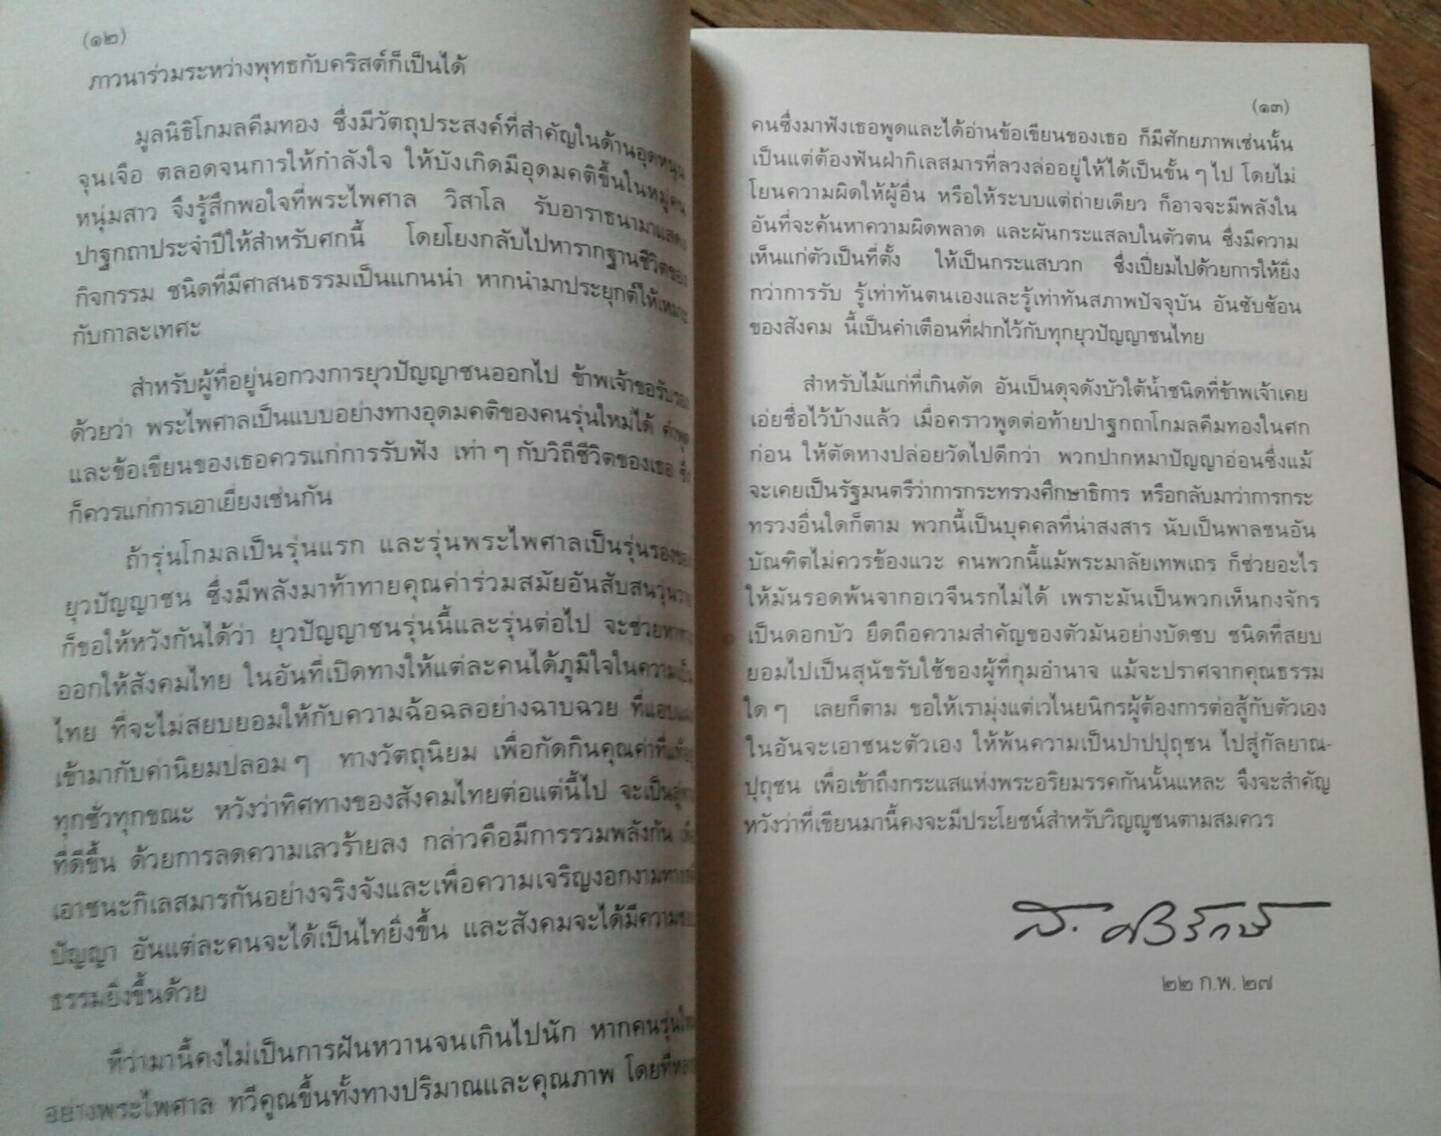 (๑๒)
ภาวนาร่วมระหว่างพุทธกับคริสต์ก็เป็นได้
มูลนิธิโกมลคีมทอง ซึ่งมีวัตถุประสงค์ที่สำคัญในด้านอุดหนุน
จุนเจือ ตลอดจนการให้กำลังใจ ให้บังเกิดมีอุดมคติขึ้นในหมู่คน
หนุ่มสาว จึงรู้สึกพอใจที่พระไพศาล วิสาโล รับอาราธนามาแสดง
ปาฐกถาประจำปีให้สำหรับศกนี้ โดยโยงกลับไปหารากฐานชีวิตของ
กิจกรรม ชนิดที่มีศาสนธรรมเป็นแกนนำ หากนำมาประยุกต์ให้เหมาะ
กับกาละเทศะ
สำหรับผู้ที่อยู่นอกวงการยุวปัญญาชนออกไป ข้าพเจ้าขอรับรอง
ด้วยว่า พระไพศาลเป็นแบบอย่างทางอุดมคติของคนรุ่นใหม่ได้ คำพูด
และข้อเขียนของเธอควรแก่การรับฟัง เท่า ๆ กับวิถีชีวิตของเธอ ซึ่ง
ก็ควรแก่การเอาเยี่ยงเช่นกัน
ถ้ารุ่นโกมลเป็นรุ่นแรก และรุ่นพระไพศาลเป็นรุ่นรองของ
ยุวปัญญาชน ซึ่งมีพลังมาท้าทายคุณค่าร่วมสมัยอันสับสนวุ่นวาย
ก็ขอให้หวังกันได้ว่า ยุวปัญญาชนรุ่นนี้และรุ่นต่อไป จะช่วยหาทาง
ออกให้สังคมไทย ในอันที่เปิดทางให้แต่ละคนได้ภูมิใจในความเป็น
ไทย ที่จะไม่สยบยอมให้กับความฉ้อฉลอย่างฉาบฉวย ที่แอบแฝง
เข้ามากับค่านิยมปลอม ๆ ทางวัตถุนิยม เพื่อกัดกินคุณค่าที่แท้จริง
ทุกชั่วทุกขณะ หวังว่าทิศทางของสังคมไทยต่อแต่นี้ไป จะเป็นสู่ทาง
ที่ดีขึ้น ด้วยการลดความเลวร้ายลง กล่าวคือมีการรวมพลังกัน เพื่อ
เอาชนะกิเลสมารกันอย่างจริงจังและเพื่อความเจริญงอกงามทาง
ปัญญา อันแต่ละคนจะได้เป็นไทยิ่งขึ้น และสังคมจะได้มีความชอบ
ธรรมยิ่งขึ้นด้วย
ที่ว่ามานี้คงไม่เป็นการฝันหวานจนเกินไปนัก หากคนรุ่นใหม่
อย่างพระไพศาล ทวีคูณขึ้นทั้งทางปริมาณและคุณภาพ โดยที่หลาย
(๑๓)
คนซึ่งมาฟังเธอพูดและได้อ่านข้อเขียนของเธอ ก็มีศักยภาพเช่นนั้น
เป็นแต่ต้องฟันฝ่ากิเลสมารที่ลวงล่ออยู่ให้ได้เป็นขั้น ๆ ไป โดยไม่
โยนความผิดให้ผู้อื่น หรือให้ระบบแต่ถ่ายเดียว ก็อาจจะมีพลังใน
อันที่จะค้นหาความผิดพลาด และผันกระแสลบในตัวตน ซึ่งมีความ
เห็นแก่ตัวเป็นที่ตั้ง ให้เป็นกระแสบวก ซึ่งเปี่ยมไปด้วยการให้ยิ่ง
กว่าการรับ รู้เท่าทันตนเองและรู้เท่าทันสภาพปัจจุบัน อันซับซ้อน
ของสังคม นี้เป็นคำเตือนที่ฝากไว้กับทุกยุวปัญญาชนไทย
สำหรับไม้แก่ที่เกินดัด อันเป็นดุจดังบัวใต้น้ำชนิดที่ข้าพเจ้าเคย
เอ่ยชื่อไว้บ้างแล้ว เมื่อคราวพูดต่อท้ายปาฐกถาโกมลคีมทองในศก
ก่อน ให้ตัดหางปล่อยวัดไปดีกว่า พวกปากหมาปัญญาอ่อนซึ่งแม้
จะเคยเป็นรัฐมนตรีว่าการกระทรวงศึกษาธิการ หรือกลับมาว่าการกระ
ทรวงอื่นใดก็ตาม พวกนี้เป็นบุคคลที่น่าสงสาร นับเป็นพาลชนอัน
บัณฑิตไม่ควรข้องแวะ คนพวกนี้แม้พระมาลัยเทพเถร ก็ช่วยอะไร
ให้มันรอดพ้นจากอเวจีนรกไม่ได้ เพราะมันเป็นพวกเห็นกงจักร
เป็นดอกบัว ยึดถือความสำคัญของตัวมันอย่างบัดซบ ชนิดที่สยบ
ยอมไปเป็นสุนัขรับใช้ของผู้ที่กุมอำนาจ แม้จะปราศจากคุณธรรม
ใด ๆ เลยก็ตาม ขอให้เรามุ่งแต่เวไนยนิกรผู้ต้องการต่อสู้กับตัวเอง
ในอันจะเอาชนะตัวเอง ให้พ้นความเป็นปาปปุถุชน ไปสู่กัลยาณ-
ปุถุชน เพื่อเข้าถึงกระแสแห่งพระอริยมรรคกันนั้นแหละ จึงจะสำคัญ
หวังว่าที่เขียนมานี้คงจะมีประโยชน์สำหรับวิญญูชนตามสมควร
ส. ศิวรักษ์
๒๒ ก.พ. ๒๗